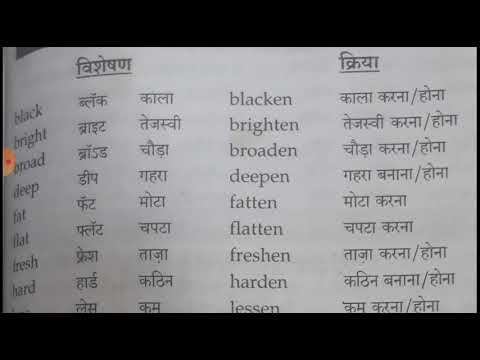 विशेषण क्रिया
black ब्लॅक काला blacken काला करना/होना
bright ब्राइट तेजस्वी brighten तेजस्वी करना/होना
broad ब्रॉऽड चौड़ा broaden चौड़ा करना/होना
deep डीप गहरा deepen गहरा बनाना/होना
fat फॅट मोटा fatten मोटा करना
flat फ्लॅट चपटा flatten चपटा करना
fresh फ्रेश ताज़ा freshen ताज़ा करना/होना
hard हार्ड कठिन harden कठिन बनाना/होना
लेस कम lessen कम करना/होना